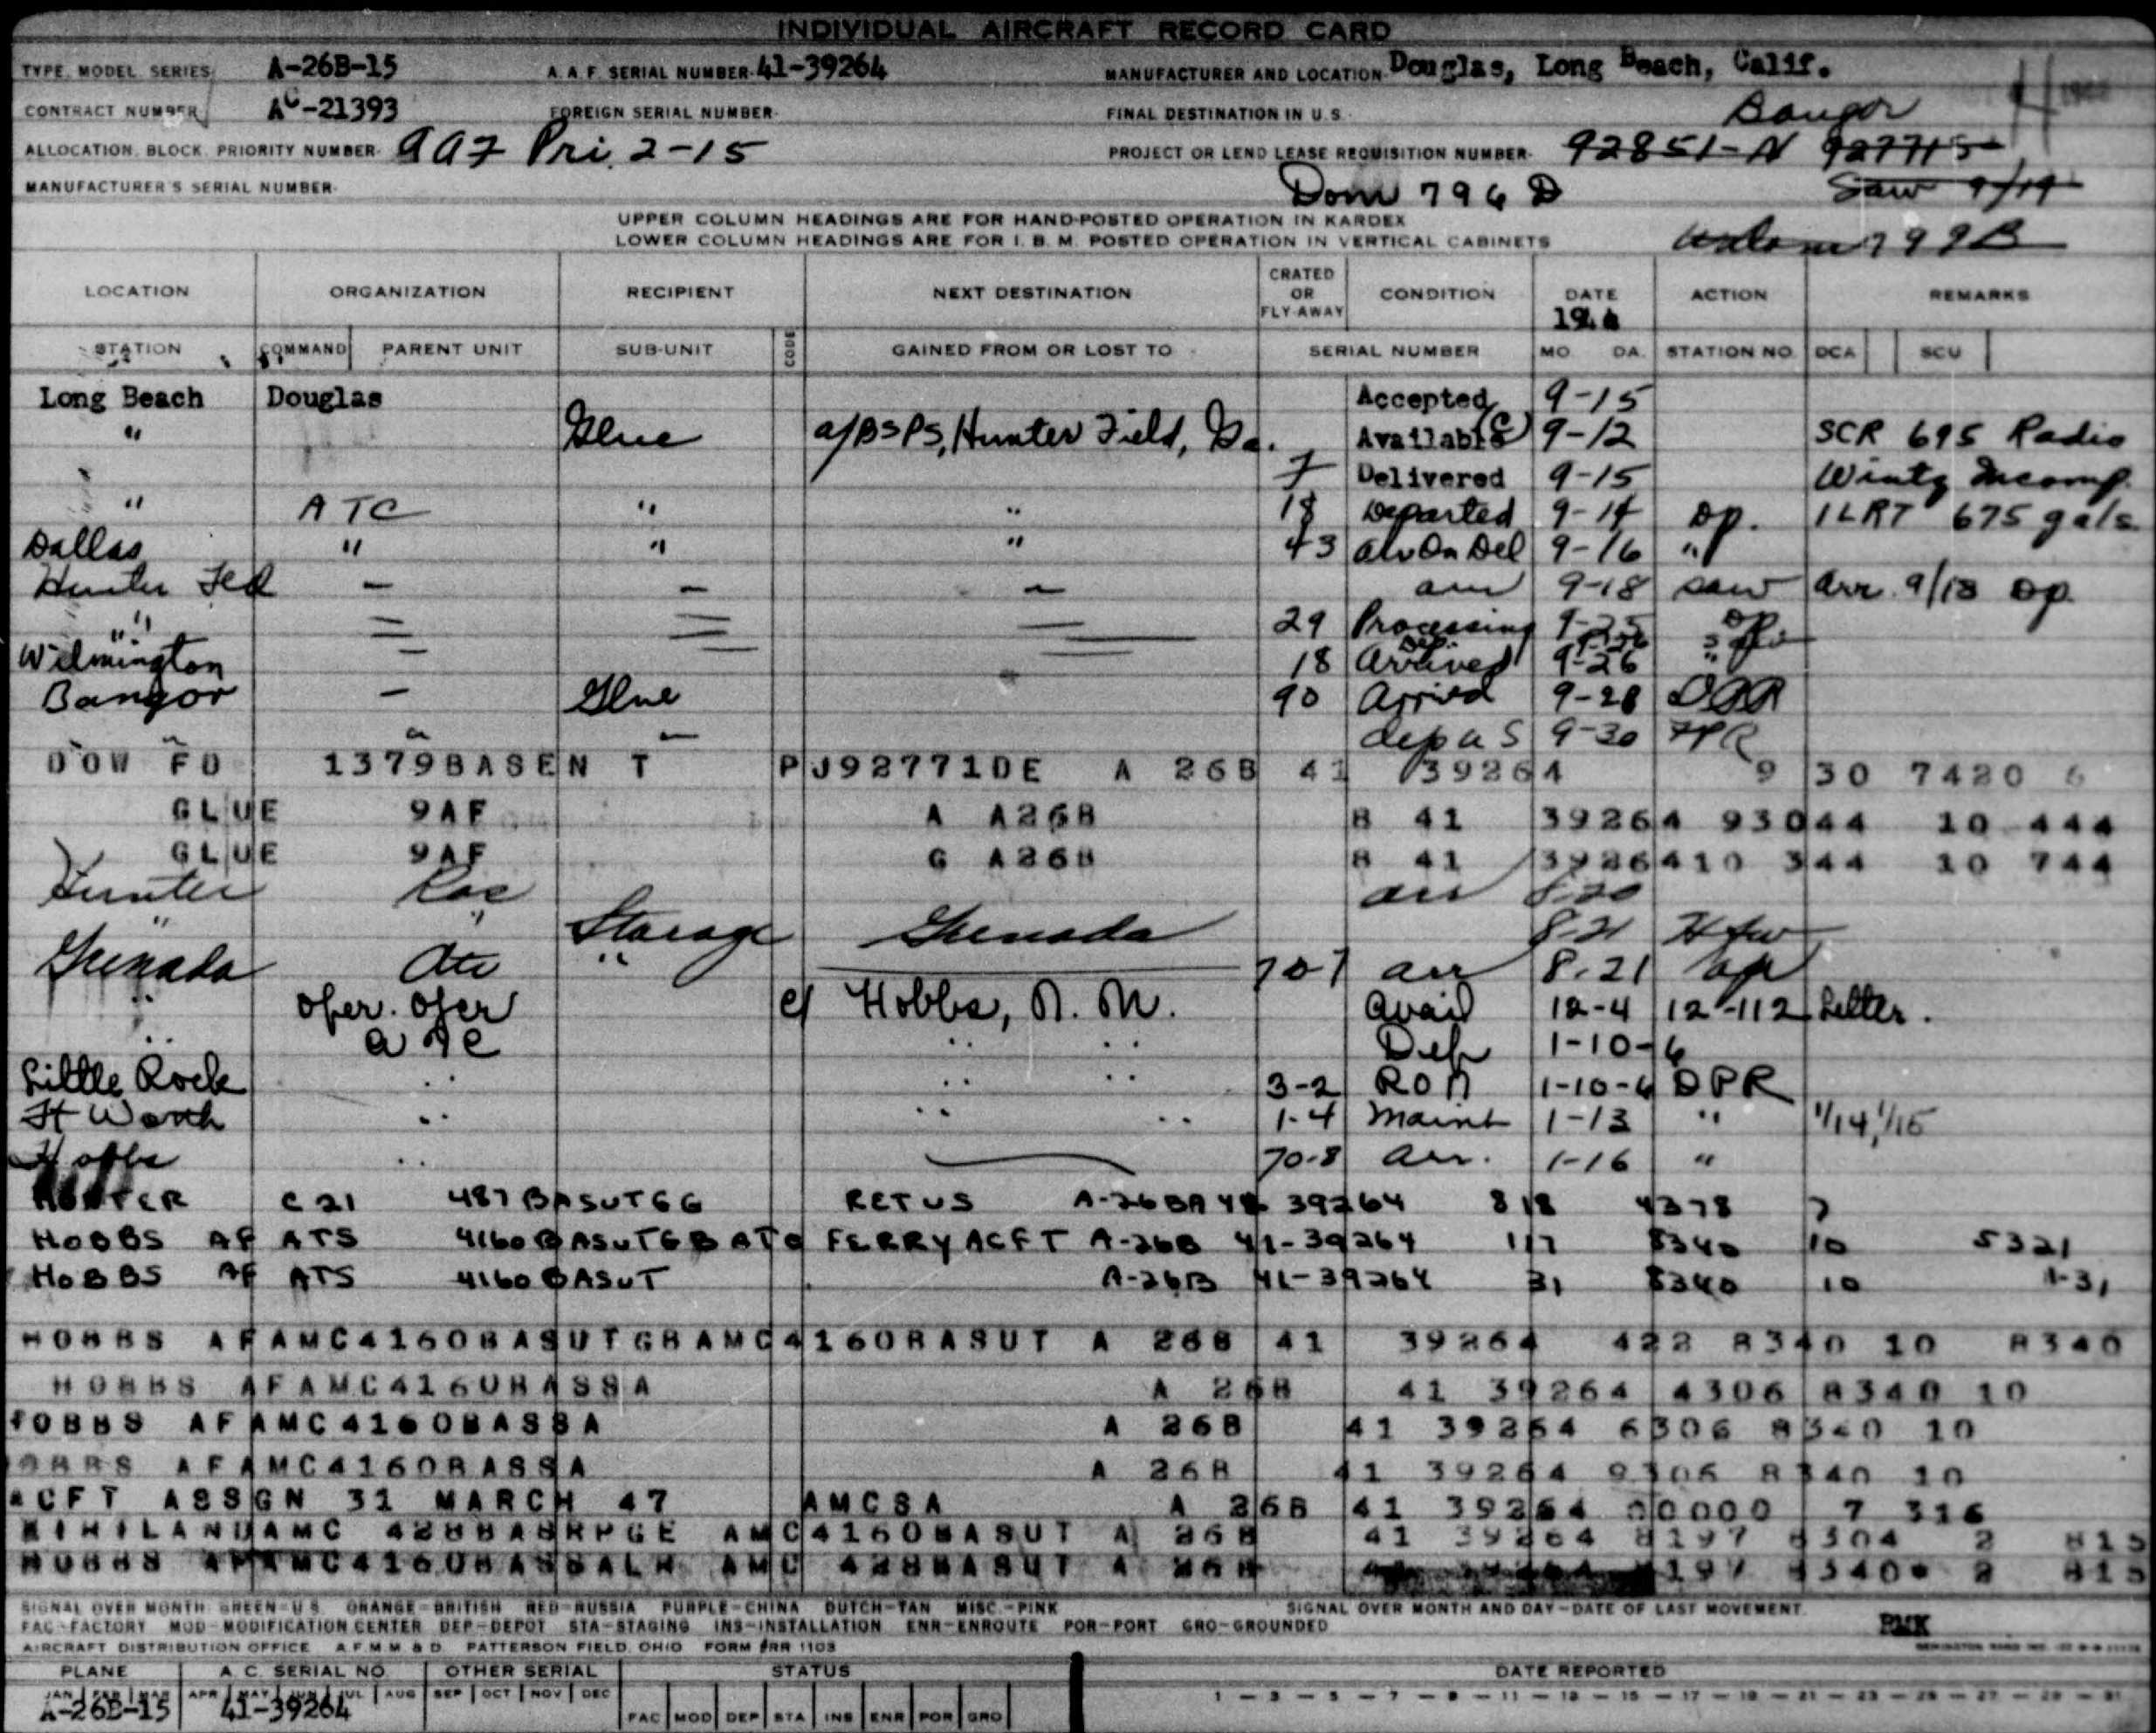 INDIVIDUAL AIRCRAFT RECORD CARD
TYPE, MODEL SERIES A-26B-15 A.A.F. SERIAL NUMBER 41-39264 MANUFACTURER AND LOCATION Douglas, Long Beach, Calif.
CONTRACT NUMBER AC-21393 FOREIGN SERIAL NUMBER FINAL DESTINATION IN U.S. Bangor
ALLOCATION, BLOCK, PRIORITY NUMBER Pri. 2-15 PROJECT OR LEND LEASE REQUISITION NUMBER 92851-N 92771S
MANUFACTURER'S SERIAL NUMBER Dom 796 D Saw 9/19
UPPER COLUMN HEADINGS ARE FOR HAND-POSTED OPERATION IN KARDEX
LOWER COLUMN HEADINGS ARE FOR I.B.M. POSTED OPERATION IN VERTICAL CABINETS 799B
LOCATION ORGANIZATION RECIPIENT NEXT DESTINATION CRATED OR FLY-AWAY CONDITION DATE ACTION REMARKS
STATION COMMAND PARENT UNIT SUB-UNIT CODE GAINED FROM OR LOST TO SERIAL NUMBER MO. DA. STATION NO. DCA SCU
Long Beach Douglas Accepted 9-15
" Glue a/BSPS, Hunter Field, Ga. Available 9-12 SCR 695 Radio
7 Delivered 9-15 Wintz Incomp.
" ATC " " 18 Departed 9-14 Op. 1LRT 675 gals
Dallas " " " 43 9-16 "
Hunter Fld — — — arr 9-18 saw Arr. 9/18 Op.
" 29 Processing 9-25 Op
Wilmington 18 Arrived 9-26
Bangor — Glue 90 Arrived 9-28 DPR
9-30
DOW FD 1379BASEN T PJ92771DE A 26B 41 39264 9 30 7420 6
GLUE 9AF A A26B B 41 39264 93044 10 444
GLUE 9AF G A26B B 41 39264 10 344 10 744
Hunter arr 8-20
" " Storage Grenada 8-21
Grenada Atc " 70-7 arr 8-21
" Oper. Ofcr c/ Hobbs, N. M. Avail 12-4 12-112 Letter.
" ATC " " Dep 1-10-6
Little Rock " " " 3-2 RON 1-10-6 DPR
Ft Worth " " " 1-4 Maint 1-13 " 1/14, 1/15
Hobbs " 70-8 arr. 1-16 "
HUNTER C21 487 BASUTGG RETUS A-26B 39264 818 4378 7
HOBBS AF ATS 4160 BASUTGB ATS FERRY ACFT A-26B 41-39264 117 8340 10 5321
HOBBS AF ATS 4160 BASUT A-26B 41-39264 31 8340 10 1-31
HOBBS AFAMC4160BASUTGBAMC4160BASUT A 26B 41 39264 422 8340 10 8340
HOBBS AFAMC4160BASSA A 26B 41 39264 4306 8340 10
HOBBS AFAMC4160BASSA A 26B 41 39264 6306 8340 10
OBBS AFAMC4160BASSA A 26B 41 39264 9306 8340 10
ACFT ASSGN 31 MARCH 47 AMCSA A 26B 41 39264 00000 7 316
KIRTLANDAMC 428BASRPGE AMC4160BASUT A 26B 41 39264 8197 4304 2 815
HOBBS AFAMC4160BASSALH AMC 428BASUT A 26B 197 8340 2 815
SIGNAL OVER MONTH: GREEN-U.S. ORANGE-BRITISH RED-RUSSIA PURPLE-CHINA DUTCH-TAN MISC.-PINK SIGNAL OVER MONTH AND DAY-DATE OF LAST MOVEMENT.
FAC-FACTORY MOD-MODIFICATION CENTER DEP-DEPOT STA-STAGING INS-INSTALLATION ENR-ENROUTE POR-PORT GRO-GROUNDED
AIRCRAFT DISTRIBUTION OFFICE A.F.M.M.&D. PATTERSON FIELD, OHIO FORM #RR 1103
PLANE A.C. SERIAL NO. OTHER SERIAL STATUS DATE REPORTED
JAN FEB MAR APR MAY JUN JUL AUG SEP OCT NOV DEC 1-3-5-7-9-11-13-15-17-19-21-23-25-27-29-31
A-26B-15 41-39264 FAC MOD DEP STA INS ENR POR GRO